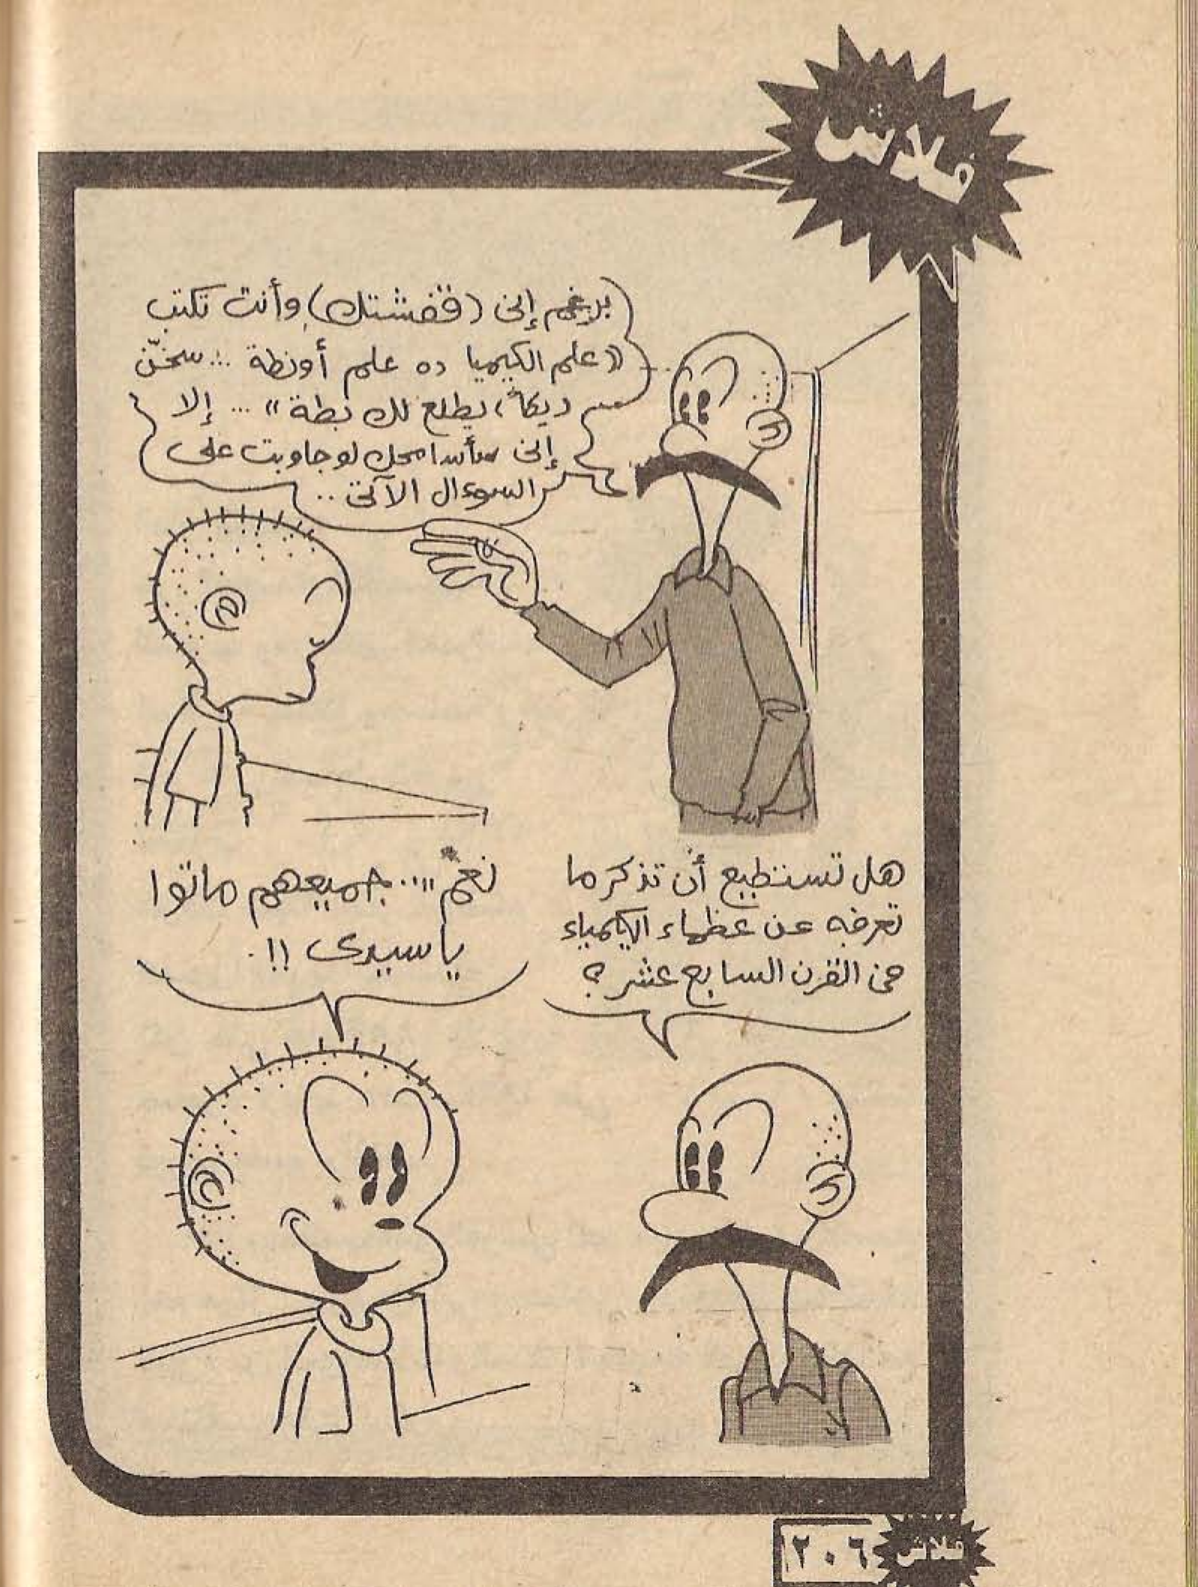 فلاش
برغم إنى (قفشتك) وأنت تكتب
«علم الكيميا ده علم أونطة... سخّن
ديكاً، يطلع لك بطة» ... إلا
إنى سأسامحك لو جاوبت على
السوءال الآتى ..
هل تستطيع أن تذكر ما
تعرفه عن عظماء الكيمياء
فى القرن السابع عشر ؟
نعم .... جميعهم ماتوا
يا سيدى !!.
فلاش
٢٠٦